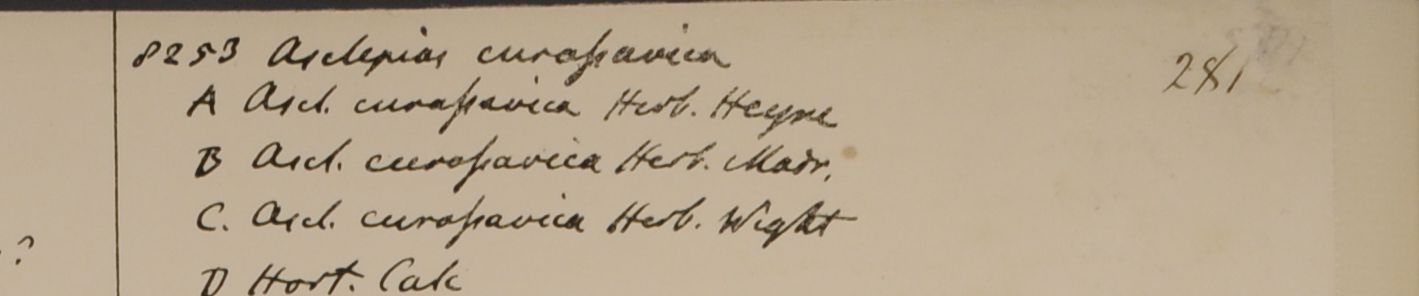 8253 Asclepias curaſsavica 281
A Ascl. curaſsavica Herb. Heyne
B Ascl. curaſsavica Herb. Madr.
C. Ascl. curaſsavica Herb. Wight
D Hort. Calc
?